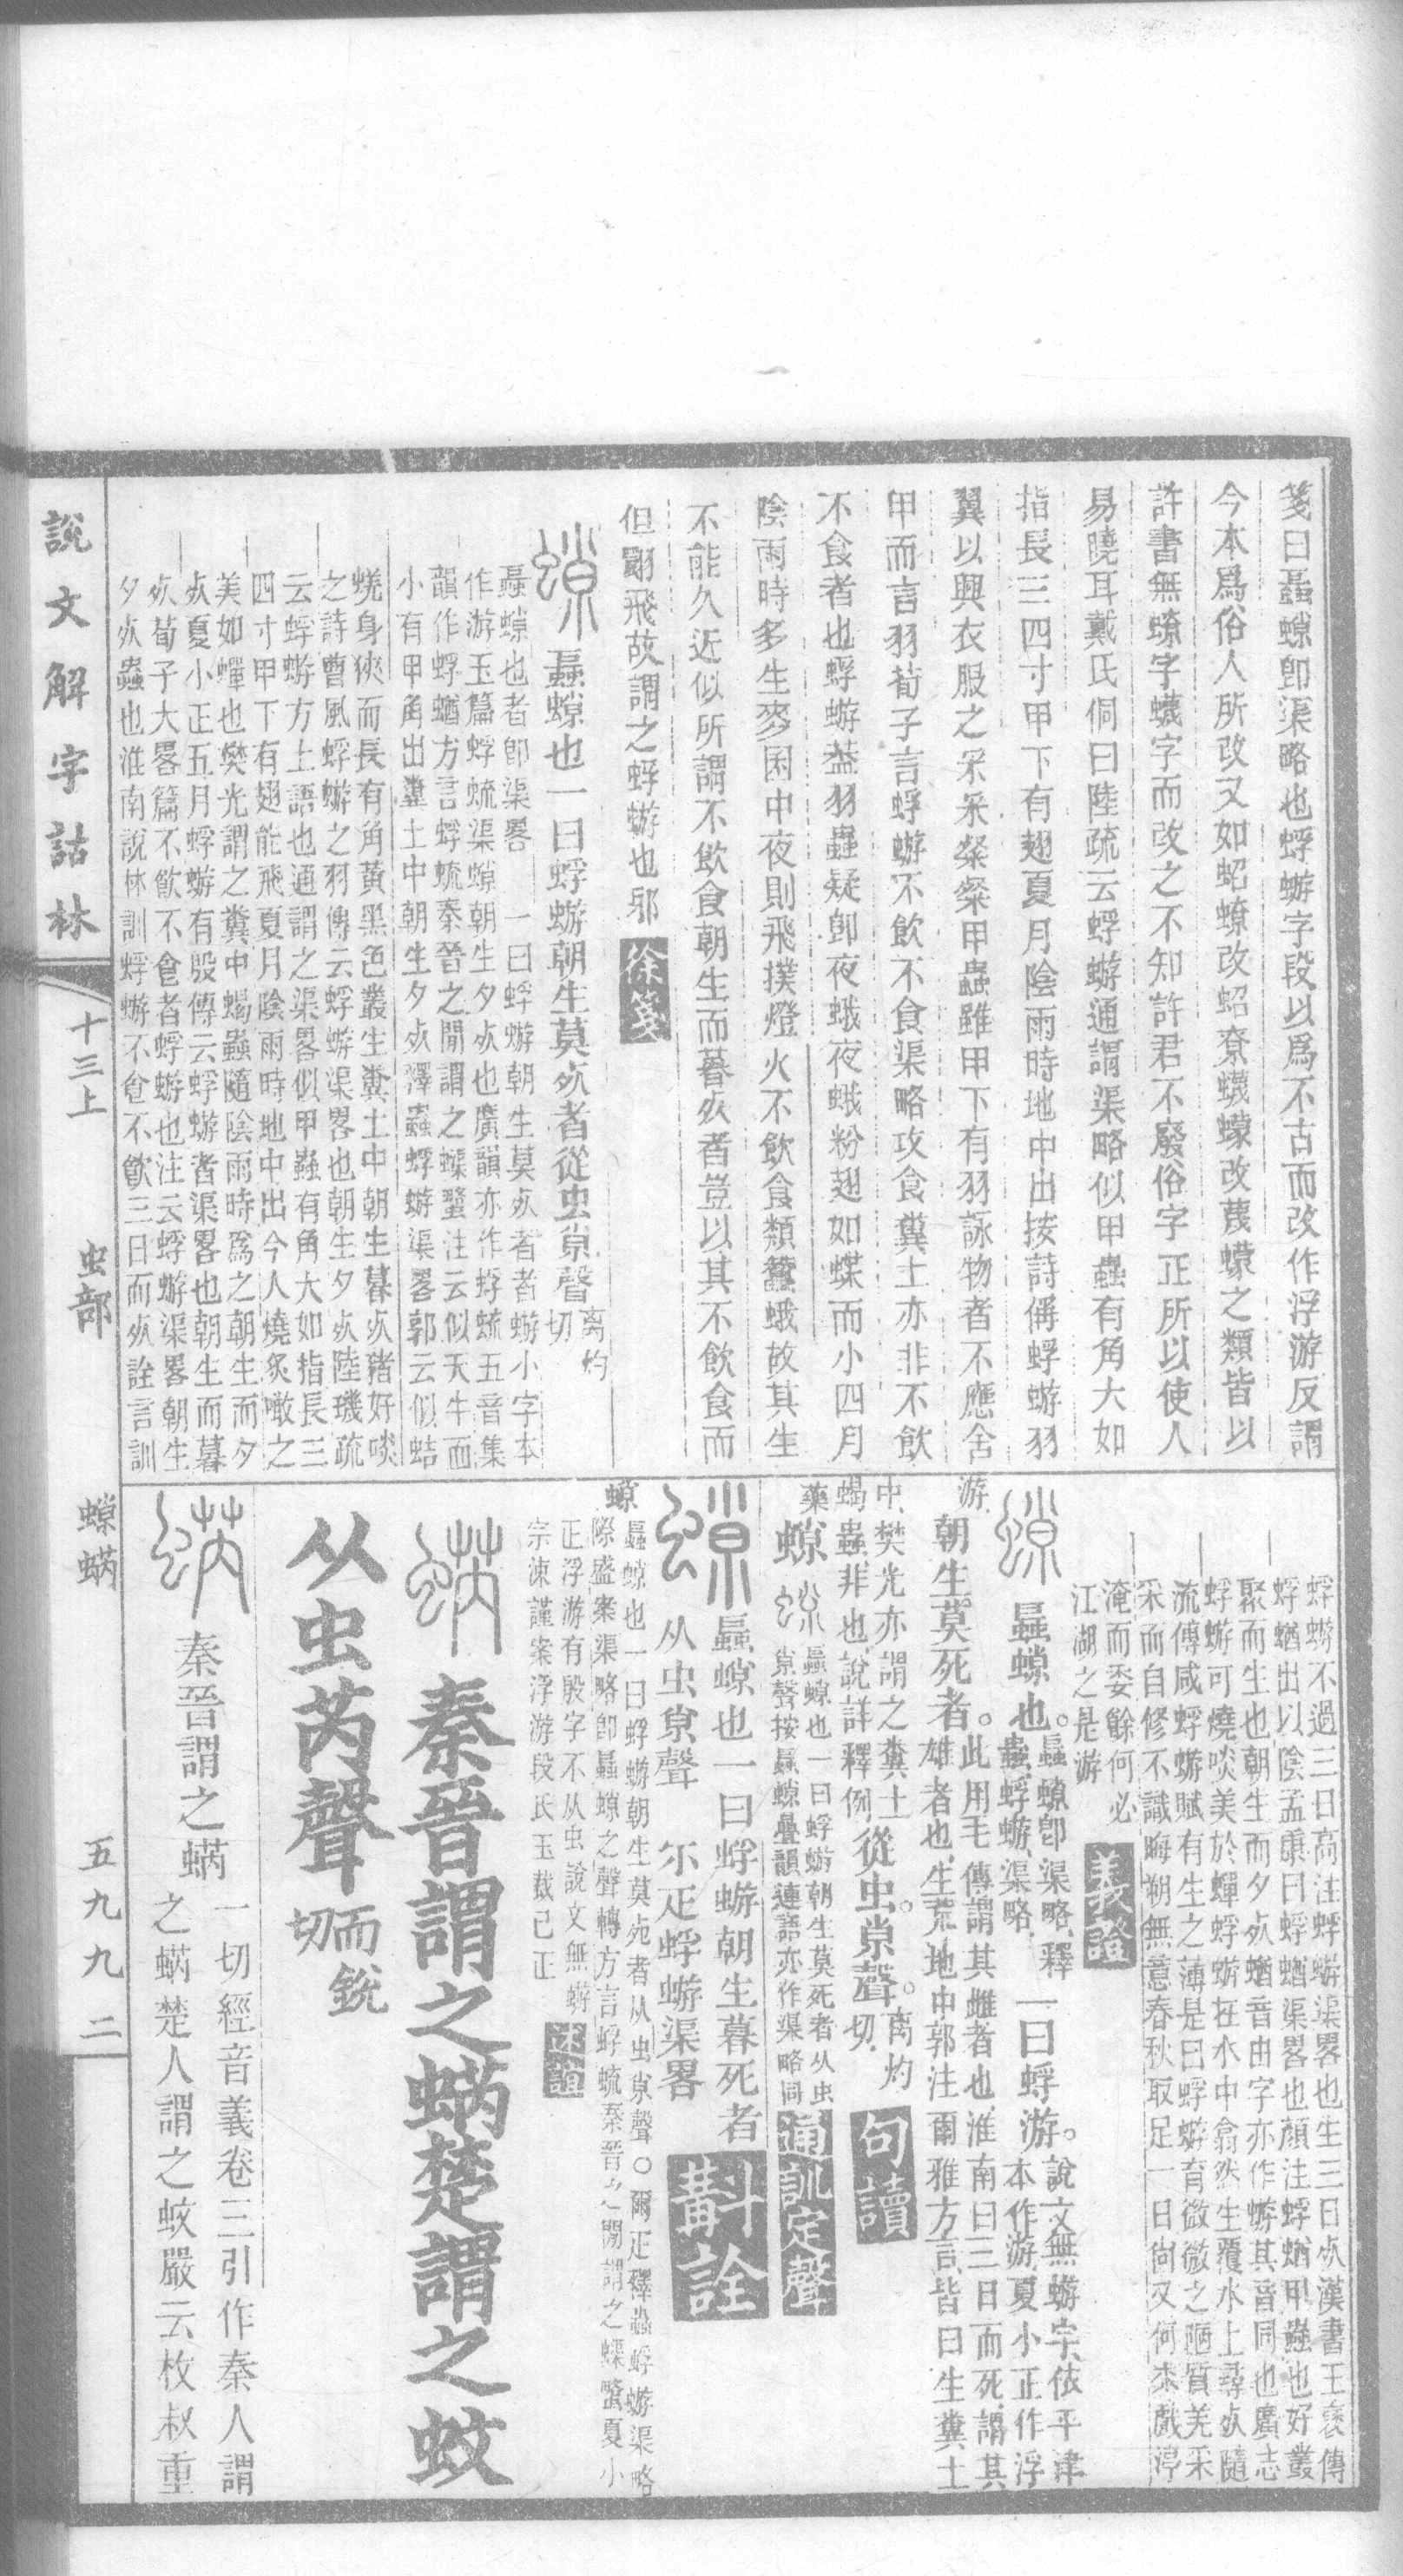 箋曰蟲螑卽渠略也蜉蝣字段以爲不古而改作浮游反謂
今本爲俗人所改又如蛁蟟改蛁尞蠛蠓改蔑蠓之類皆以
許書無蟟字蠛字而改之不知許君不廢俗字正所以使人
易曉耳戴氏侗曰陸疏云蜉蝣通謂渠略似甲蟲有角大如
指長三四寸甲下有翅夏月陰雨時地中出按詩偁蜉蝣羽
翼以興衣服之采采粲粲甲蟲雖甲下有羽詠物者不應舍
甲而言羽荀子言蜉蝣不飲不食渠略攻食糞土亦非不飲
不食者也蜉蝣葢羽蟲疑卽夜蛾夜蛾粉翅如蝶而小四月
陰雨時多生麥囷中夜則飛撲燈火不飲食類蠶蛾故其生
不能久近似所謂不飲食朝生而暮㱙者豈以其不飲食而
但翾飛故謂之蜉蝣也邪 徐箋
蟲螑也一曰蜉蝣朝生莫㱙者從虫㡿聲 离灼切
作游玉篇蜉蝣渠螑朝生夕㱙也廣韻亦作蜉蝣五音集
韻作蜉蝤方言蜉𧋭秦晉之閒謂之蟝𧐯注云似天牛而
小有甲角出糞土中朝生夕㱙釋蟲蜉蝣渠畧郭云似蛣
蜣身狹而長有角黃黑色叢生糞土中朝生暮㱙豬好啖
之詩曹風蜉蝣之羽傳云蜉蝣渠畧也朝生夕㱙陸璣疏
云蜉蝣方土語也通謂之渠畧似甲蟲有角大如指長三
四寸甲下有翅能飛夏月陰雨時地中出今人燒炙噉之
美如蟬也樊光謂之糞中蝎蟲隨陰雨時爲之朝生而夕
㱙夏小正五月蜉蝣有殷傳云蜉蝣者渠畧也朝生而暮
㱙荀子大畧篇不飮不食者蜉蝣也注云蜉蝣渠畧朝生
夕㱙蟲也淮南說林訓蜉蝣不食不飮三日而㱙詮言訓
蜉蝣不過三日高注蜉蝣渠畧也生三日㱙漢書王褒傳
蜉蝤出以陰孟康曰蜉蝤渠畧也顏注蜉蝤甲蟲也好叢
聚而生也朝生而夕㱙蝤音由字亦作蝣其音同也廣志
蜉蝣可燒啖美於蟬蜉蝣在水中翕然生覆水上尋㱙隨
流傅咸蜉蝣賦有生之薄是曰蜉蝣育微微之陋質羌采
采而自修不識晦朔無意春秋取足一日尙又何求戲渟
淹而委餘何必
江湖之是游 義證
蟲螑也。蟲螑卽渠略釋蟲蜉蝣渠略一曰蜉游。說文無蝣字依平津本作游夏小正作浮游
朝生莫死者。此用毛傳謂其雌者也淮南曰三日而死謂其雄者也生荒地中郭注爾雅方言皆曰生糞土
中樊光亦謂之糞土
蝎蟲非也說詳釋例從虫㡿聲。离灼切 句讀
蟲螑也一曰蜉蝣朝生莫死者从虫
㡿聲按蟲螑疊韻連語亦作渠略同 通訓定聲
蟲螑也一曰蜉蝣朝生暮死者
从虫㡿聲 尒疋蜉蝣渠畧 斠詮
蟲螑也一曰蜉蝣朝生莫死者从虫㡿聲○爾疋釋蟲蜉蝣渠略
際盛案渠略卽蟲螑之聲轉方言蜉𧋭秦晉之閒謂之蟝𧐯夏小
正浮游有殷字不从虫說文無蝣
宗涑謹案浮游段氏玉裁已正 述誼
秦晉謂之蜹楚謂之蚊
从虫芮聲 而銳切
秦晉謂之蜹 一切經音義卷三引作秦人謂
之蜹楚人謂之蚊嚴云枚叔重
說文解字詁林
十三上
虫部
螑蜹
五九九二